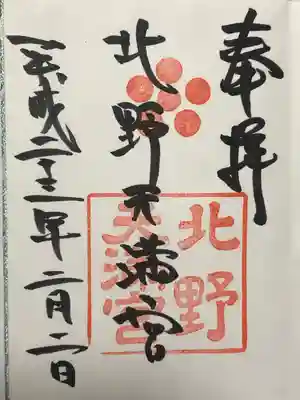 奉拝
北野天満宮
北野
天満宮
平成二十二年二月二日